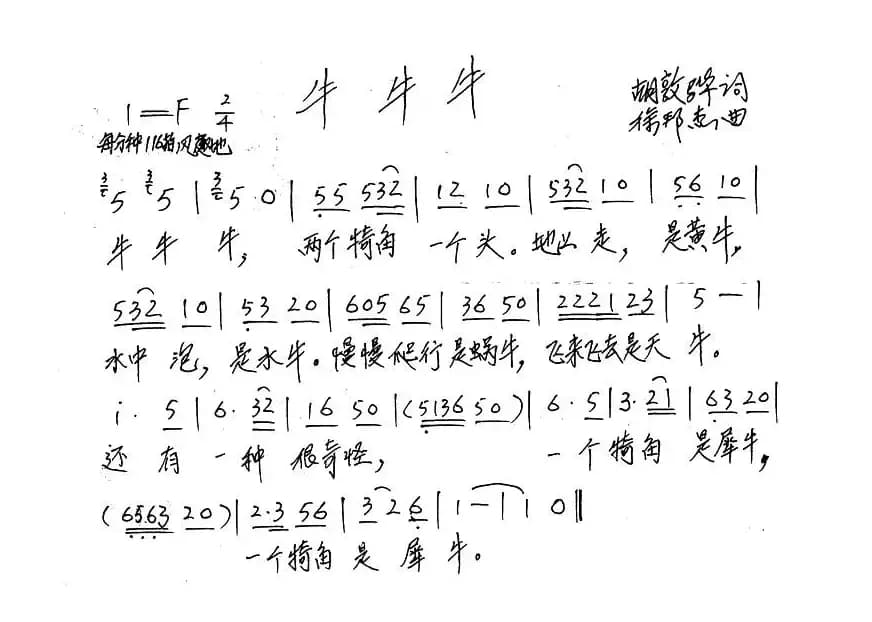 牛 牛 牛
1=F 2/4
胡敦骅词
每分种116拍风趣地
徐邦杰曲
3 5 3 5 | 3 5 0 | 55 532 | 12 10 | 532 10 | 56 10 |
牛 牛 牛, 两个犄角 一个头。地上 走, 是黄牛,
532 10 | 53 20 | 605 65 | 36 50 | 2221 23 | 5 — |
水中 泡, 是水牛。慢慢爬行是蜗牛, 飞来飞去是天 牛。
i· 5 | 6· 32 | 16 50 | (5136 50) | 6· 5 | 3· 21 | 63 20 |
还 有 一 种 很奇怪, 一 个 犄角 是犀牛,
(6563 20) | 2·3 56 | 3 2 6 | 1 — | 1 0 ‖
一个犄角 是 犀 牛。